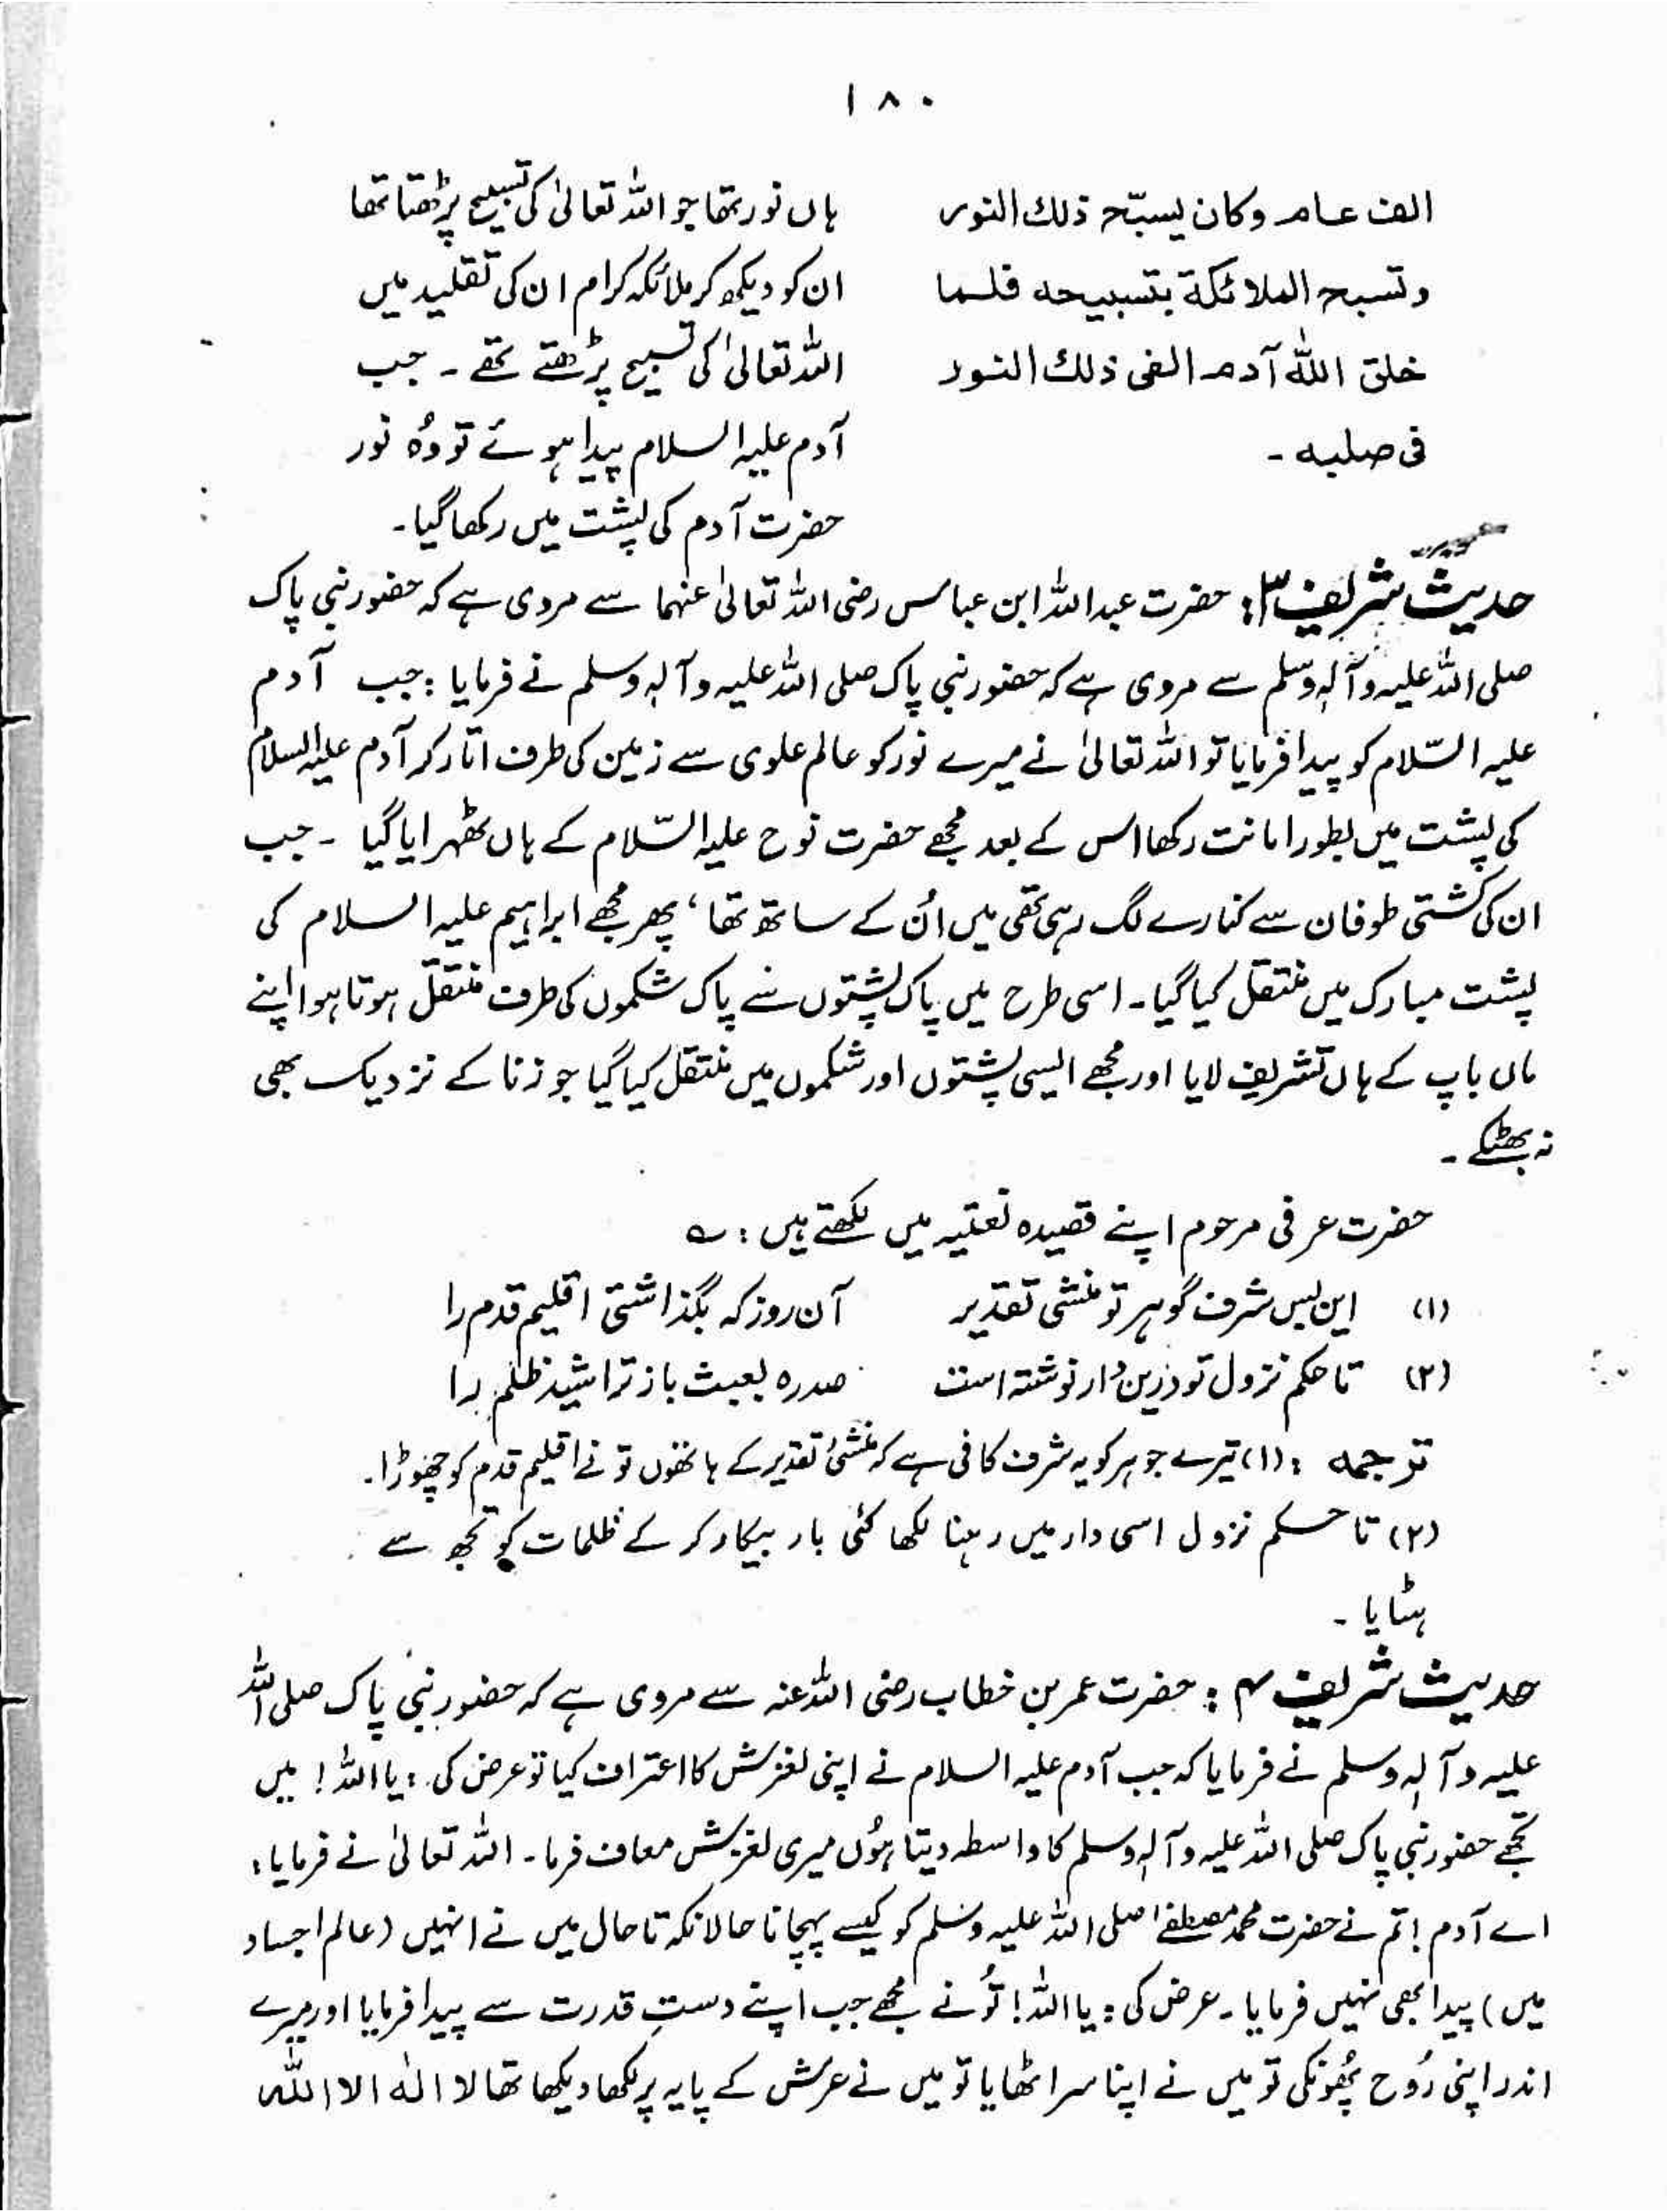 ۱۸۰
الف عام وكان يسبّح ذلك النور
وتسبح الملائكة بتسبيحه فلما
خلق اللّٰه آدم القى ذلك النور
فى صلبه ۔
ہاں نور تھا جو اللہ تعالیٰ کی تسبیح پڑھتا تھا
ان کو دیکھ کر ملائکہ کرام ان کی تقلید میں
اللہ تعالیٰ کی تسبیح پڑھتے تھے ۔ جب
آدم علیہ السلام پیدا ہوئے تو وُہ نور
حضرت آدم کی پشت میں رکھا گیا۔
حدیث شریف ۳: حضرت عبداللہ ابن عباس رضی اللہ تعالیٰ عنہما سے مروی ہے کہ حضور نبی پاک
صلی اللہ علیہ وآلہٖ وسلم سے مروی ہے کہ حضور نبی پاک صلی اللہ علیہ وآلہٖ وسلم نے فرمایا : جب آدم
علیہ السّلام کو پیدا فرمایا تو اللہ تعالیٰ نے میرے نور کو عالم علوی سے زمین کی طرف اتار کر آدم علیہ السلام
کی پشت میں بطور امانت رکھا اس کے بعد مجھے حضرت نوح علیہ السّلام کے ہاں ٹھہرایا گیا ۔ جب
ان کی کشتی طوفان سے کنارے لگ رہی تھی میں اُن کے ساتھ تھا ، پھر مجھے ابراہیم علیہ السلام کی
پشت مبارک میں منتقل کیا گیا۔ اسی طرح میں پاک پشتوں سے پاک شکموں کی طرف منتقل ہوتا ہوا اپنے
ماں باپ کے ہاں تشریف لایا اور مجھے ایسی پشتوں اور شکموں میں منتقل کیا گیا جو زنا کے نزدیک بھی
نہ بھٹکے ۔
حضرت عرفی مرحوم اپنے قصیدہ نعتیہ میں لکھتے ہیں : ؎
(۱) این بس شرف گوہر تو منشی تقدیر آن روز کہ بگذاشتی اقلیم قدم را
(۲) تا حکم نزول تو درین دار نوشتہ است صدرہ بعبث باز تراشید ظلم را
ترجمہ : (۱) تیرے جوہر کو یہ شرف کافی ہے کہ منشیٔ تقدیر کے ہاتھوں تو نے اقلیم قدم کو چھوڑا۔
(۲) تا حکم نزول اسی دار میں رہنا لکھا کئی بار بیکار کر کے ظلمات کو تجھ سے
ہٹایا ۔
حدیث شریف ۴ : حضرت عمر بن خطاب رضی اللہ عنہ سے مروی ہے کہ حضور نبی پاک صلی اللہ
علیہ وآلہٖ وسلم نے فرمایا کہ جب آدم علیہ السلام نے اپنی لغزش کا اعتراف کیا تو عرض کی : یا اللہ ! میں
تجھے حضور نبی پاک صلی اللہ علیہ وآلہٖ وسلم کا واسطہ دیتا ہُوں میری لغزش معاف فرما ۔ اللہ تعالیٰ نے فرمایا :
اے آدم ! تم نے حضرت محمد مصطفےٰ صلی اللہ علیہ وسلم کو کیسے پہچانا حالانکہ تاحال میں نے انہیں (عالم اجساد
میں) پیدا بھی نہیں فرمایا ۔ عرض کی : یا اللہ ! تُو نے مجھے جب اپنے دستِ قدرت سے پیدا فرمایا اور میرے
اندر اپنی رُوح پُھونکی تو میں نے اپنا سر اٹھایا تو میں نے عرش کے پایہ پر لکھا دیکھا تھا لا الٰہ الا اللّٰہ